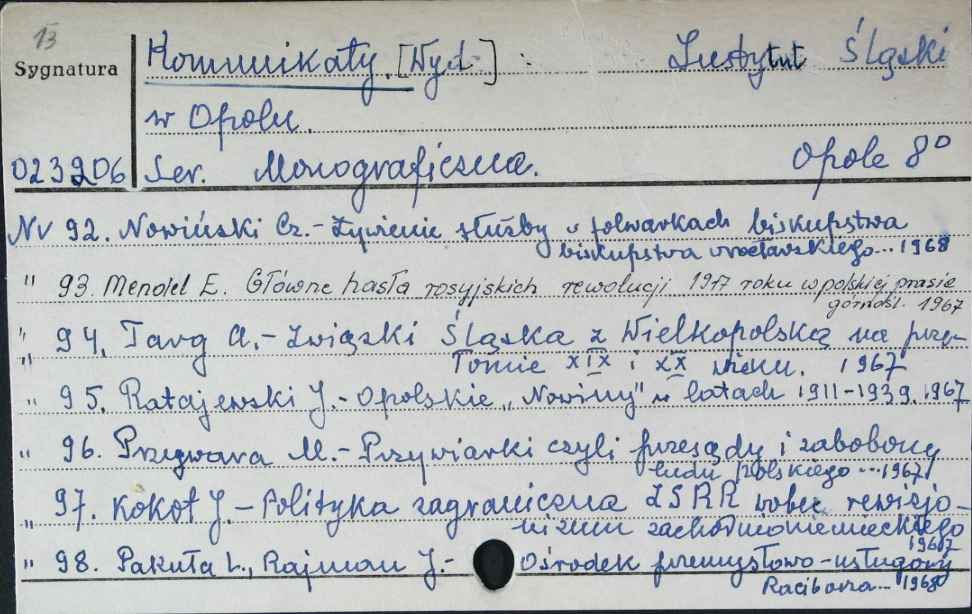 13
Sygnatura
Komunikaty. [Wyd.] : Instytut Śląski
w Opolu.
023206 Ser. Monograficzna. Opole 8°
Nr 92. Nowiński Cz.- Żywienie służby w folwarkach biskupstwa
biskupstwa wrocławskiego... 1968
" 93. Mendel E. Główne hasła rosyjskich rewolucji 1917 roku w polskiej prasie
górnośl. 1967
" 94. Targ A.- Związki Śląska z Wielkopolską na prze-
" łomie XIX i XX wieku. 1967
" 95. Ratajewski J.- Opolskie „Nowiny" w latach 1911-1939. 1967
" 96. Przywara M.- Przywiarki czyli przesądy i zabobony
ludu polskiego ... 1967
" 97. Kokot J.- Polityka zagraniczna ZSRR wobec rewizjo-
nizmu zachodnioniemieckiego
1967
" 98. Pakuła L., Rajman J.- Ośrodek przemysłowo-usługowy
Raciborza... 1968